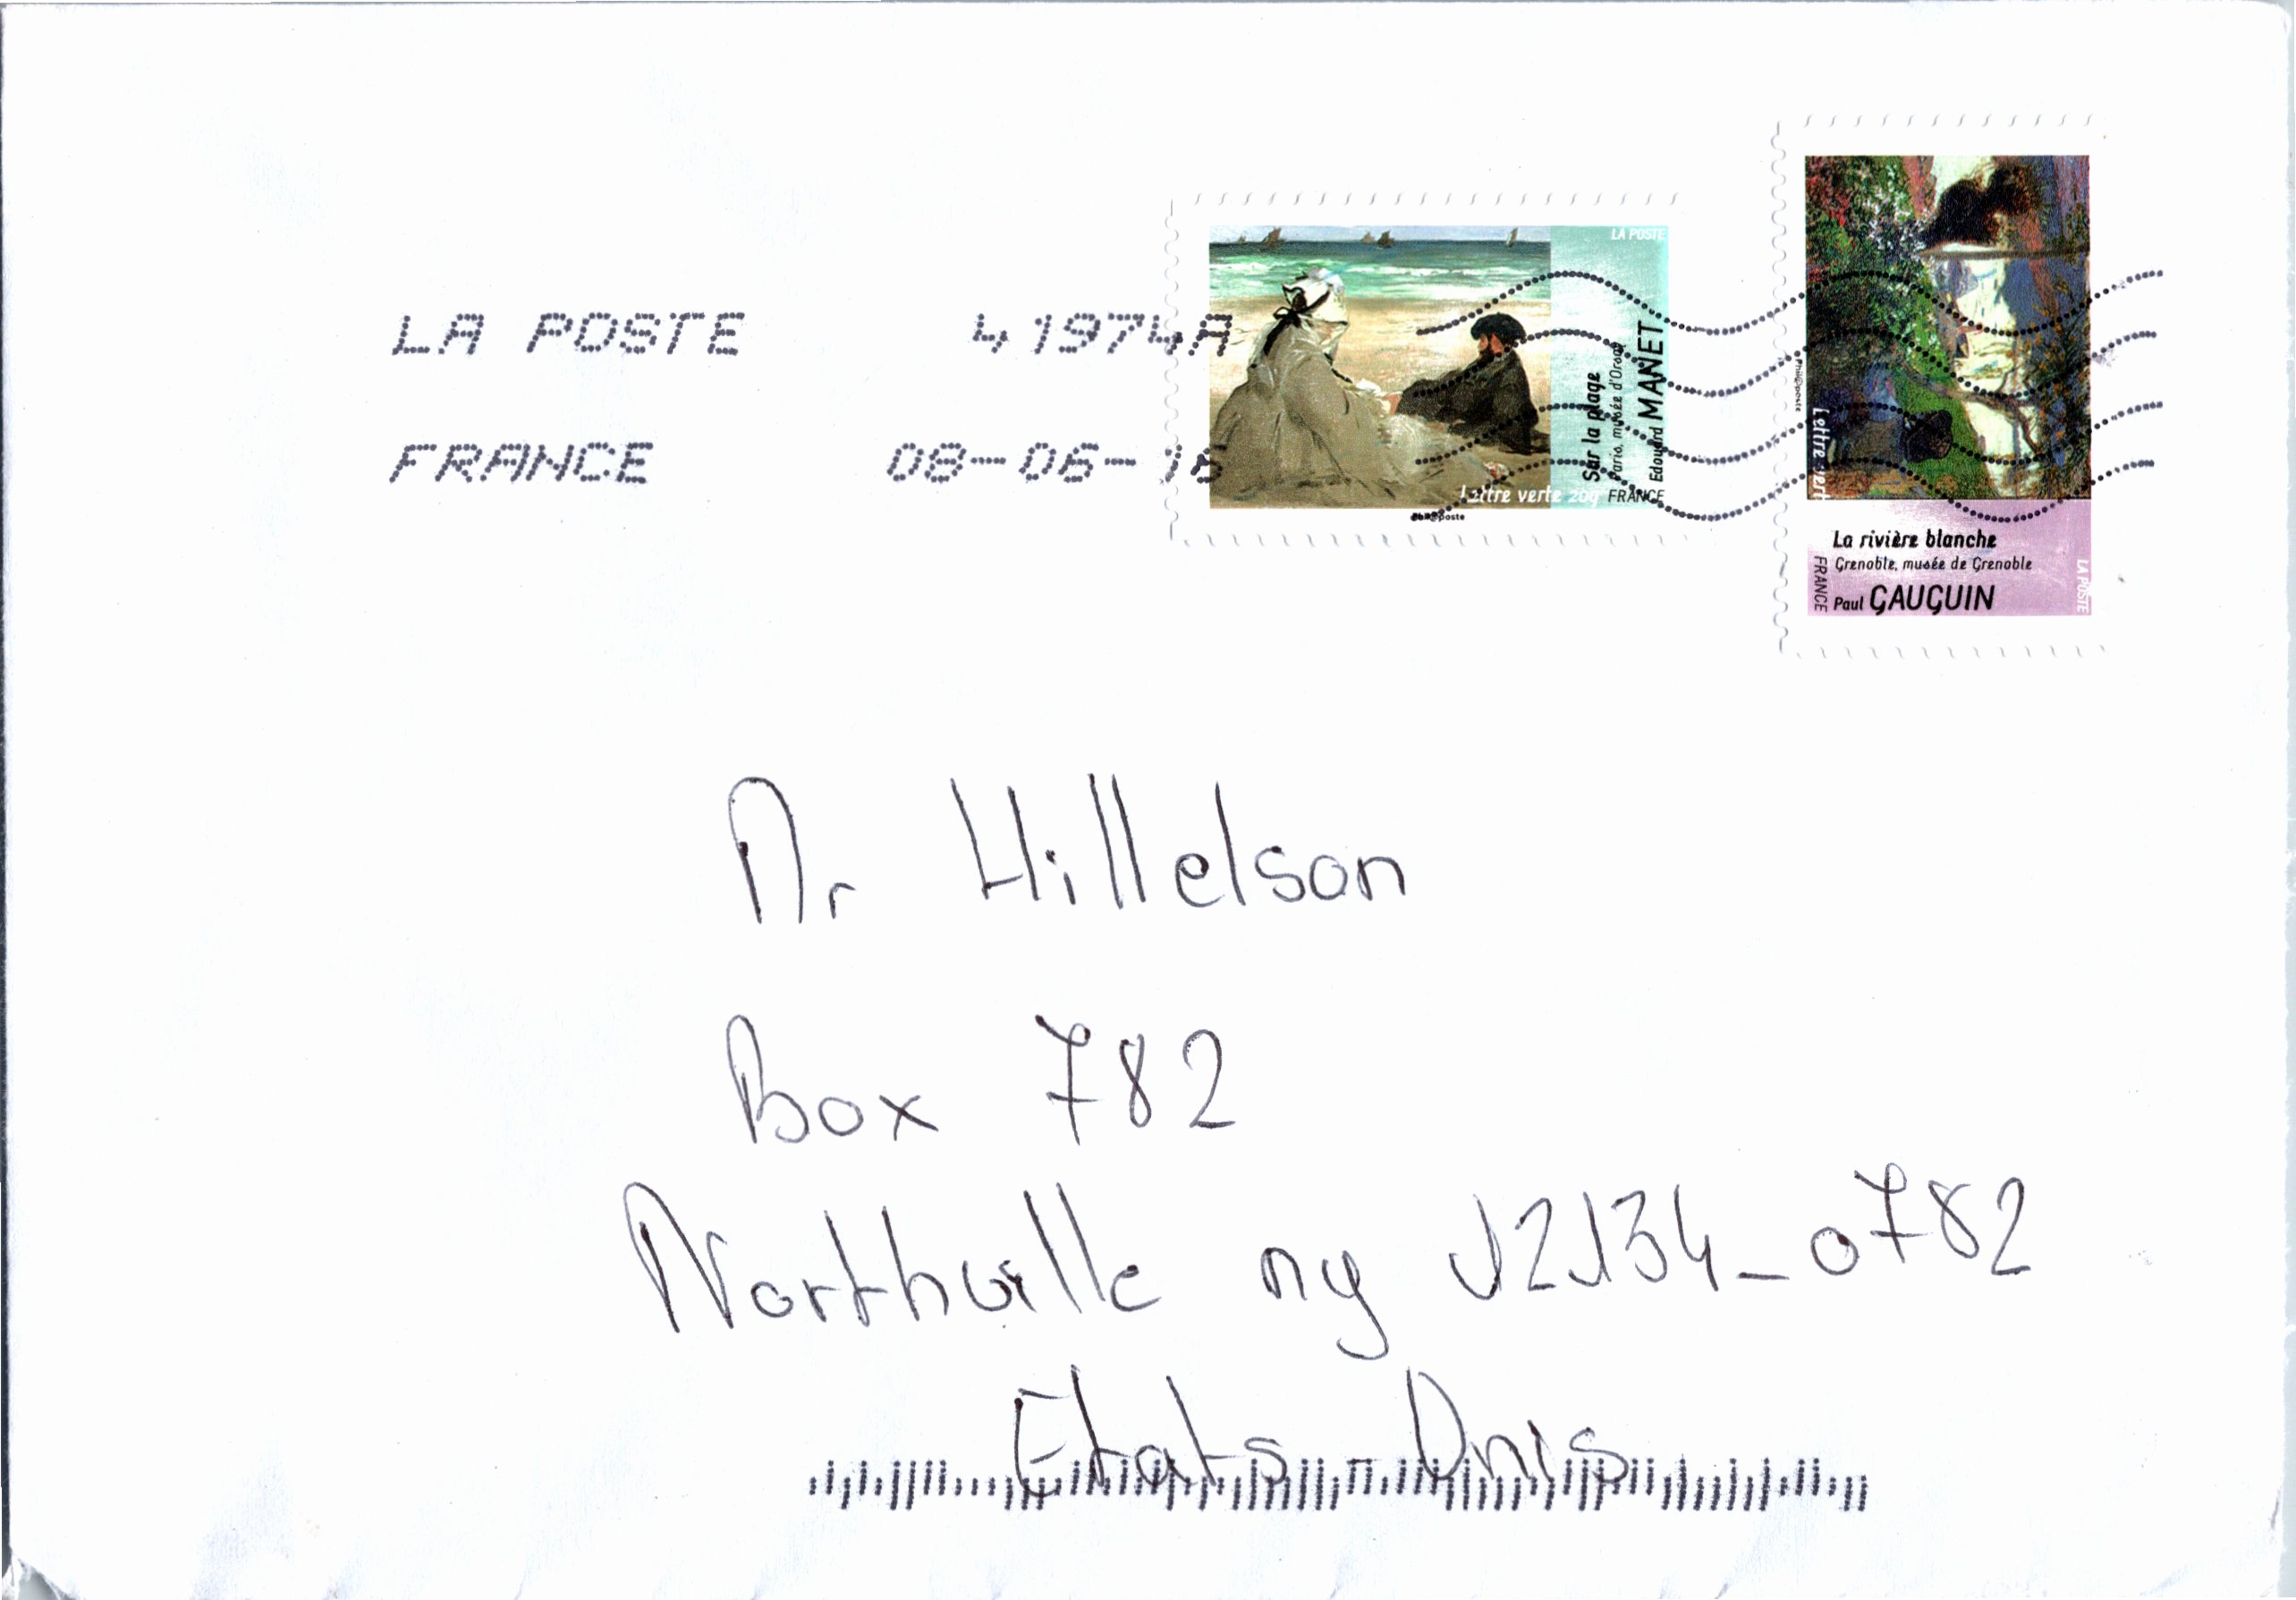 LA POSTE 41974A
FRANCE 08-06-16
LA POSTE
Sur la plage
Paris, musée d'Orsay
Edouard MANET
Lettre verte 20g FRANCE
Phil@poste
Phil@poste
Lettre vert
La rivière blanche
Grenoble, musée de Grenoble
Paul GAUGUIN
FRANCE
LA POSTE
Mr Hillelson
Box 782
Northville ny 12134_0782
Etats-Unis